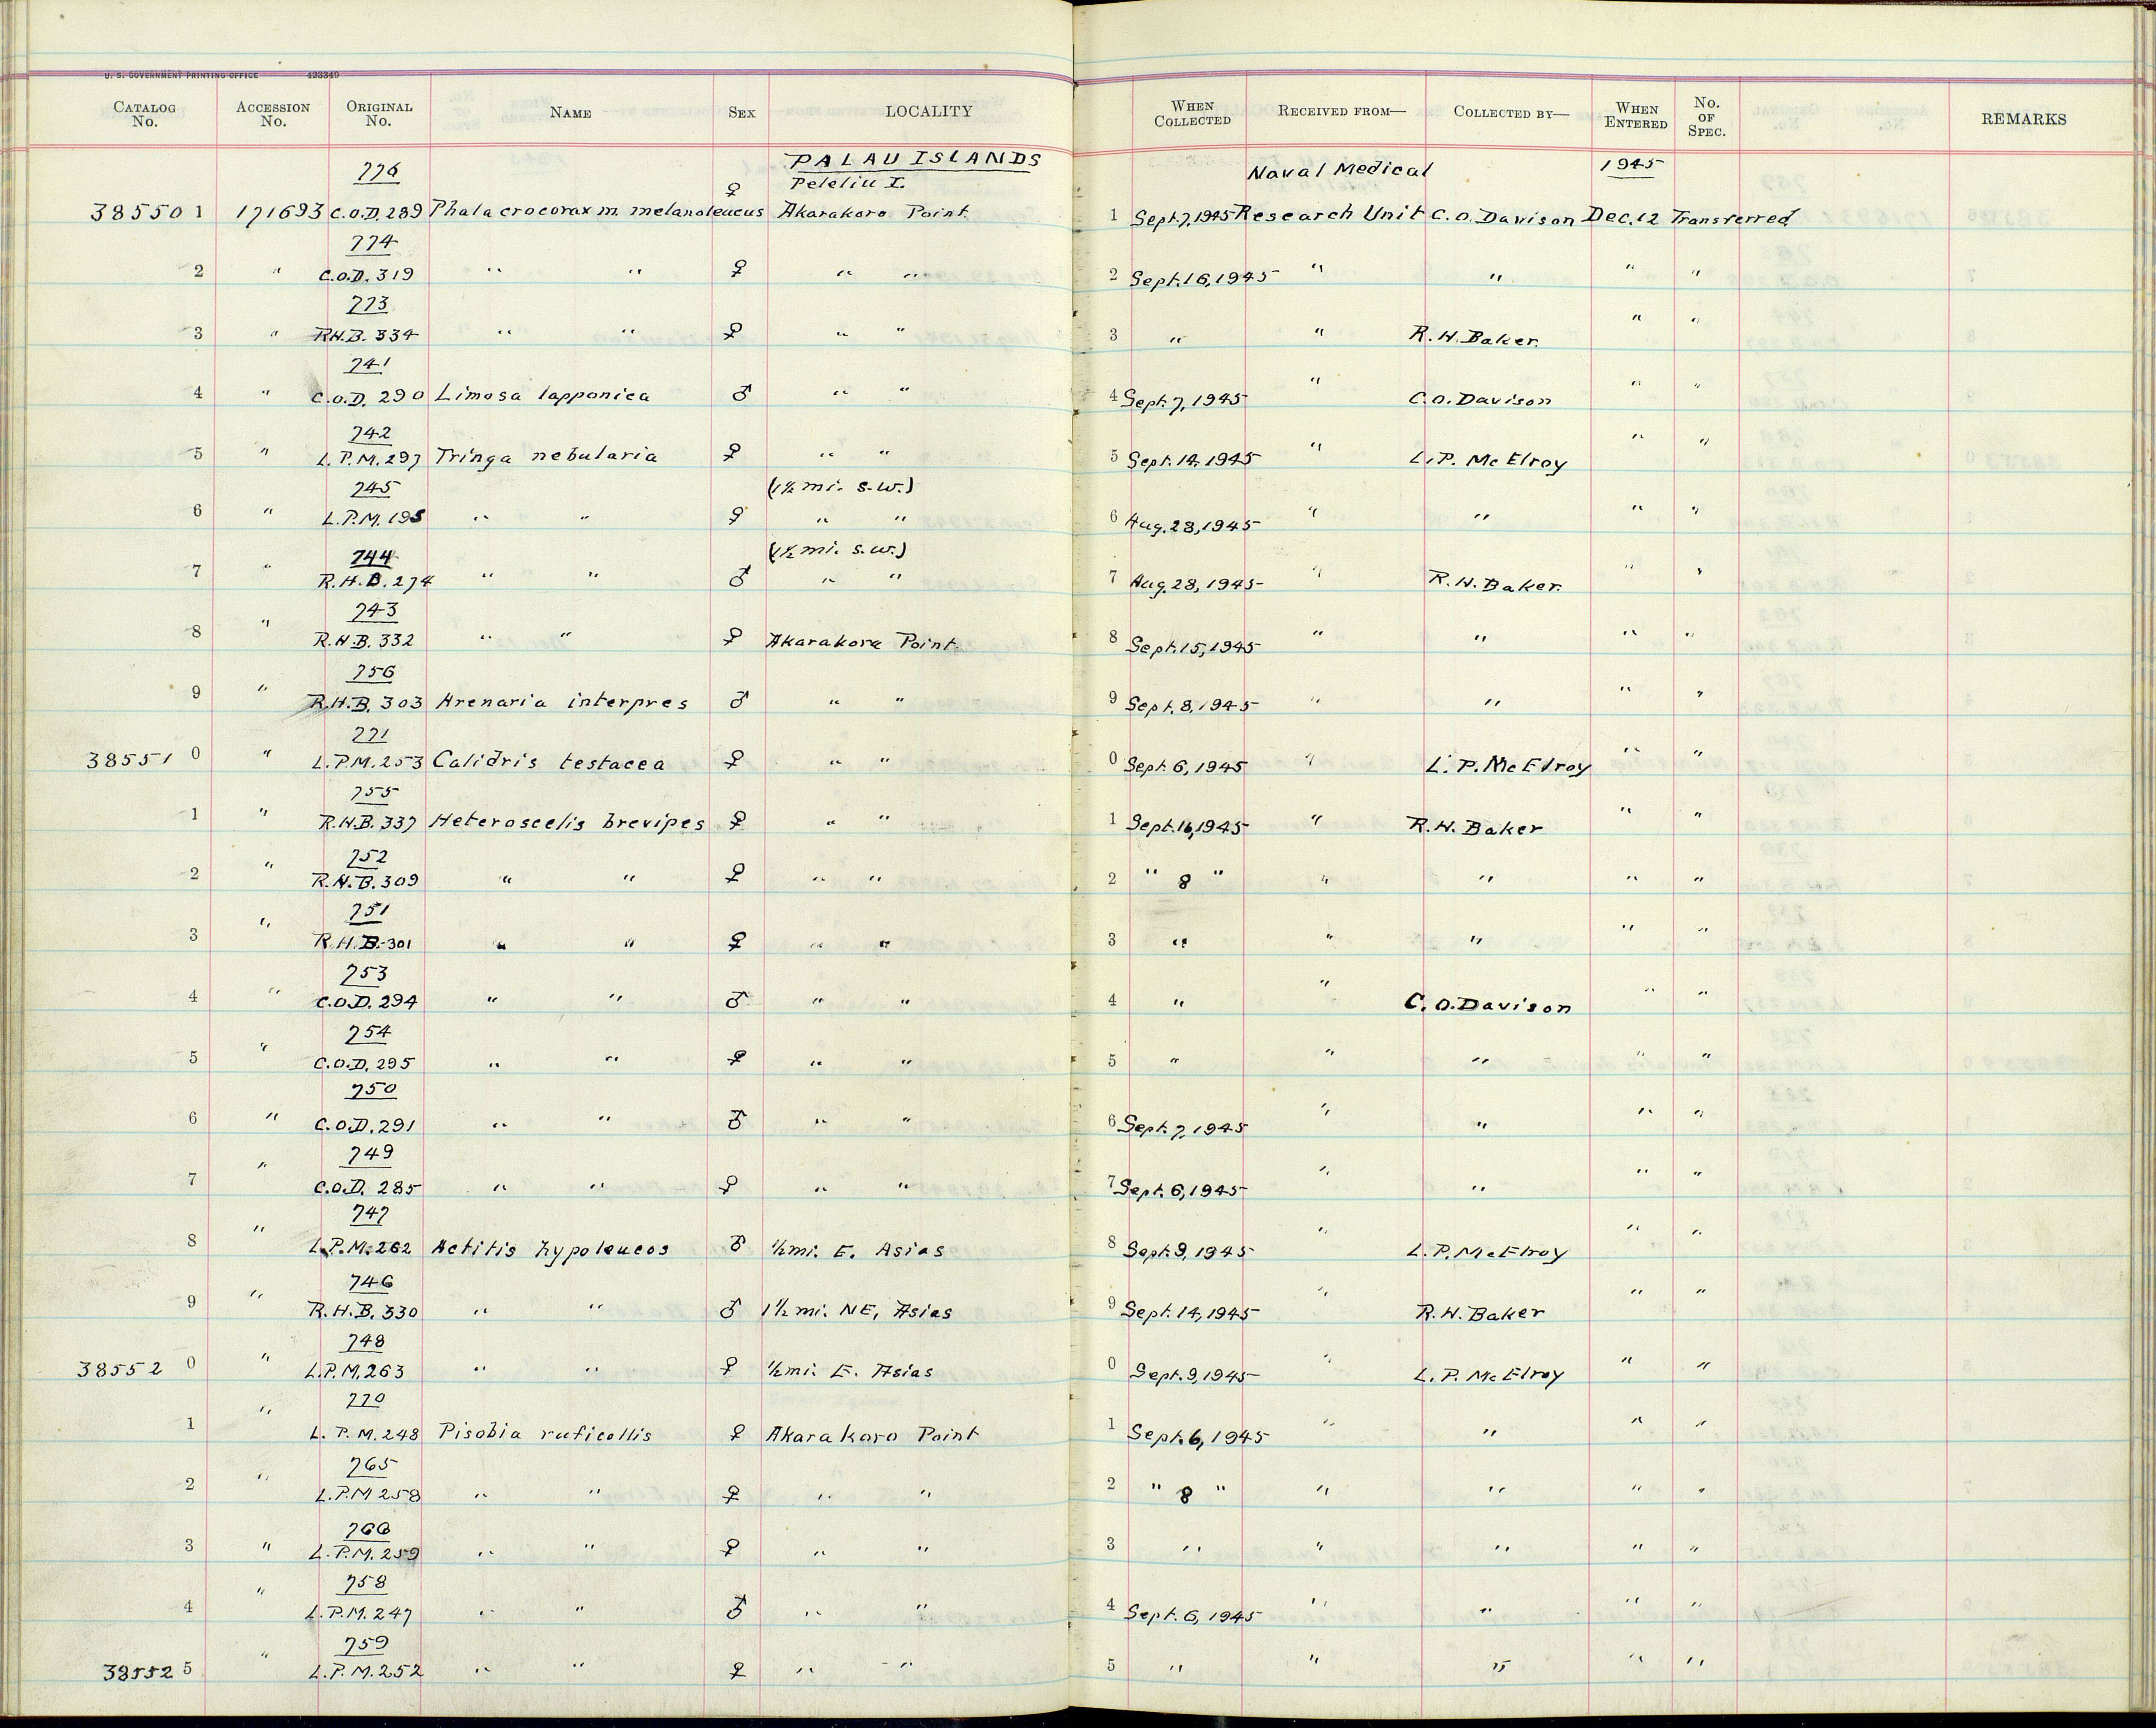 U. S. GOVERNMENT PRINTING OFFICE 423349
CATALOG No. ACCESSION No. ORIGINAL No. NAME SEX LOCALITY WHEN COLLECTED RECEIVED FROM— COLLECTED BY— WHEN ENTERED No. OF SPEC. REMARKS
776 PALAU ISLANDS Naval Medical 1945
Peleliu I.
385501 171693 C.O.D. 289 Phalacrocorax m. melanoleucus ♀ Akarakoro Point 1 Sept. 7, 1945 Research Unit C. O. Davison Dec. 12 Transferred
774
2 " C.O.D. 319 " " ♀ " " 2 Sept. 16, 1945 " " " "
773
3 " R.H.B. 334 " " ♀ " " 3 " " R. H. Baker " "
741
4 " C.O.D. 290 Limosa lapponica ♂ " " 4 Sept. 7, 1945 " C. O. Davison " "
742
5 " L.P.M. 297 Tringa nebularia ♀ " " 5 Sept. 14, 1945 " L. P. McElroy " "
745 (1½ mi. S.W.)
6 " L.P.M. 195 " " ♀ " " 6 Aug. 28, 1945 " " " "
744 (1½ mi. S.W.)
7 " R.H.B. 274 " " ♂ " " 7 Aug. 28, 1945 " R. H. Baker " "
743
8 " R.H.B. 332 " " ♀ Akarakora Point 8 Sept. 15, 1945 " " " "
756
9 " R.H.B. 303 Arenaria interpres ♂ " " 9 Sept. 8, 1945 " " " "
771
385510 " L.P.M. 253 Calidris testacea ♀ " " 0 Sept. 6, 1945 " L. P. McElroy " "
755
1 " R.H.B. 337 Heteroscelis brevipes ♀ " " 1 Sept. 16, 1945 " R. H. Baker " "
752
2 " R.H.B. 309 " " ♀ " " 2 " 8 " " " " "
751
3 " R.H.B. 301 " " ♀ " " 3 " " " " "
753
4 " C.O.D. 294 " " ♂ " " 4 " " C. O. Davison " "
754
5 " C.O.D. 295 " " ♀ " " 5 " " " " "
750
6 " C.O.D. 291 " " ♂ " " 6 Sept. 7, 1945 " " " "
749
7 " C.O.D. 285 " " ♀ " " 7 Sept. 6, 1945 " " " "
747
8 " L.P.M. 262 Actitis hypoleucos ♂ ½ mi. E. Asias 8 Sept. 9, 1945 " L. P. McElroy " "
746
9 " R.H.B. 330 " " ♂ 1½ mi. NE, Asias 9 Sept. 14, 1945 " R. H. Baker " "
748
385520 " L.P.M. 263 " " ♀ ½ mi. E. Asias 0 Sept. 9, 1945 " L. P. McElroy " "
770
1 " L.P.M. 248 Pisobia ruficollis ♀ Akarakoro Point 1 Sept. 6, 1945 " " " "
765
2 " L.P.M. 258 " " ♀ " " 2 " 8 " " " " "
766
3 " L.P.M. 259 " " ♀ " " 3 " " " " "
758
4 " L.P.M. 247 " " ♂ " " 4 Sept. 6, 1945 " " " "
759
385525 " L.P.M. 252 " " ♀ " " 5 " " " " "